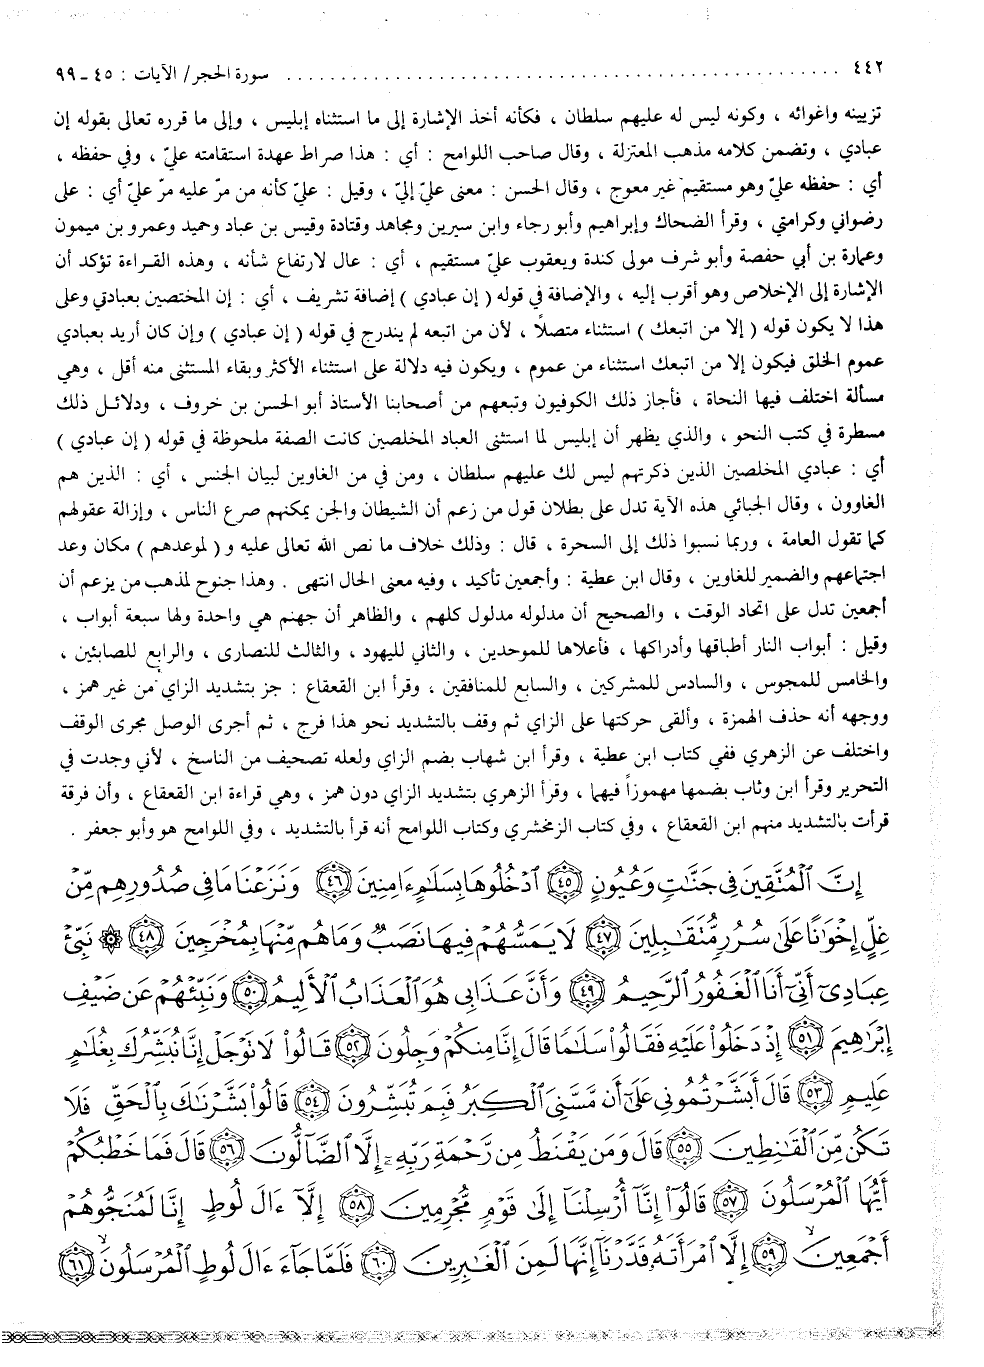 ٤٤٢ ........................................ سورة الحجر/ الآيات : ٤٥ ـ ٩٩
تزيينه واغوائه ، وكونه ليس له عليهم سلطان ، فكأنه أخذ الإشارة إلى ما استثناه إبليس ، وإلى ما قرره تعالى بقوله إن
عبادي ، وتضمن كلامه مذهب المعتزلة ، وقال صاحب اللوامح : أي : هذا صراط عهدة استقامته عليّ ، وفي حفظه ،
أي : حفظه عليّ وهو مستقيم غير معوج ، وقال الحسن : معنى عليّ إليّ ، وقيل : عليّ كأنه من مرّ عليه مرّ عليّ أي : على
رضواني وكرامتي ، وقرأ الضحاك وإبراهيم وأبو رجاء وابن سيرين ومجاهد وقتادة وقيس بن عباد وحميد وعمرو بن ميمون
وعمارة بن أبي حفصة وأبو شرف مولى كندة ويعقوب عليّ مستقيم ، أي : عال لارتفاع شأنه ، وهذه القراءة تؤكد أن
الإشارة إلى الإخلاص وهو أقرب إليه ، والإضافة في قوله ( إن عبادي ) إضافة تشريف ، أي : إن المختصين بعبادتي وعلى
هذا لا يكون قوله ( إلا من اتبعك ) استثناء متصلاً ، لأن من اتبعه لم يندرج في قوله ( إن عبادي ) وإن كان أريد بعبادي
عموم الخلق فيكون إلا من اتبعك استثناء من عموم ، ويكون فيه دلالة على استثناء الأكثر وبقاء المستثنى منه أقل ، وهي
مسألة اختلف فيها النحاة ، فأجاز ذلك الكوفيون وتبعهم من أصحابنا الأستاذ أبو الحسن بن خروف ، ودلائل ذلك
مسطرة في كتب النحو ، والذي يظهر أن إبليس لما استثنى العباد المخلصين كانت الصفة ملحوظة في قوله ( إن عبادي )
أي : عبادي المخلصين الذين ذكرتهم ليس لك عليهم سلطان ، ومن في من الغاوين لبيان الجنس ، أي : الذين هم
الغاوون ، وقال الجبائي هذه الآية تدل على بطلان قول من زعم أن الشيطان والجن يمكنهم صرع الناس ، وإزالة عقولهم
كما تقول العامة ، وربما نسبوا ذلك إلى السحرة ، قال : وذلك خلاف ما نص الله تعالى عليه و( لموعدهم ) مكان وعد
اجتماعهم والضمير للغاوين ، وقال ابن عطية : وأجمعين تأكيد ، وفيه معنى الحال انتهى . وهذا جنوح لمذهب من يزعم أن
أجمعين تدل على اتحاد الوقت ، والصحيح أن مدلوله مدلول كلهم ، والظاهر أن جهنم هي واحدة ولها سبعة أبواب ،
وقيل : أبواب النار أطباقها وأدراكها ، فأعلاها للموحدين ، والثاني لليهود ، والثالث للنصارى ، والرابع للصابئين ،
والخامس للمجوس ، والسادس للمشركين ، والسابع للمنافقين ، وقرأ ابن القعقاع : جز بتشديد الزاي من غير همز ،
ووجهه أنه حذف الهمزة ، وألقى حركتها على الزاي ثم وقف بالتشديد نحو هذا فرج ، ثم أجرى الوصل مجرى الوقف
واختلف عن الزهري ففي كتاب ابن عطية ، وقرأ ابن شهاب بضم الزاي ولعله تصحيف من الناسخ ، لأني وجدت في
التحرير وقرأ ابن وثاب بضمها مهموزاً فيهما ، وقرأ الزهري بتشديد الزاي دون همز ، وهي قراءة ابن القعقاع ، وأن فرقة
قرأت بالتشديد منهم ابن القعقاع ، وفي كتاب الزمخشري وكتاب اللوامح أنه قرأ بالتشديد ، وفي اللوامح هو وأبو جعفر .
إِنَّ ٱلْمُتَّقِينَ فِى جَنَّٰتٍ وَعُيُونٍ ٤٥ ٱدْخُلُوهَا بِسَلَٰمٍ ءَامِنِينَ ٤٦ وَنَزَعْنَا مَا فِى صُدُورِهِم مِّنْ
غِلٍّ إِخْوَٰنًا عَلَىٰ سُرُرٍ مُّتَقَٰبِلِينَ ٤٧ لَا يَمَسُّهُمْ فِيهَا نَصَبٌ وَمَا هُم مِّنْهَا بِمُخْرَجِينَ ٤٨ ۞ نَبِّئْ
عِبَادِىٓ أَنِّىٓ أَنَا ٱلْغَفُورُ ٱلرَّحِيمُ ٤٩ وَأَنَّ عَذَابِى هُوَ ٱلْعَذَابُ ٱلْأَلِيمُ ٥٠ وَنَبِّئْهُمْ عَن ضَيْفِ
إِبْرَٰهِيمَ ٥١ إِذْ دَخَلُوا۟ عَلَيْهِ فَقَالُوا۟ سَلَٰمًا قَالَ إِنَّا مِنكُمْ وَجِلُونَ ٥٢ قَالُوا۟ لَا تَوْجَلْ إِنَّا نُبَشِّرُكَ بِغُلَٰمٍ
عَلِيمٍ ٥٣ قَالَ أَبَشَّرْتُمُونِى عَلَىٰٓ أَن مَّسَّنِىَ ٱلْكِبَرُ فَبِمَ تُبَشِّرُونَ ٥٤ قَالُوا۟ بَشَّرْنَٰكَ بِٱلْحَقِّ فَلَا
تَكُن مِّنَ ٱلْقَٰنِطِينَ ٥٥ قَالَ وَمَن يَقْنَطُ مِن رَّحْمَةِ رَبِّهِۦٓ إِلَّا ٱلضَّآلُّونَ ٥٦ قَالَ فَمَا خَطْبُكُمْ
أَيُّهَا ٱلْمُرْسَلُونَ ٥٧ قَالُوٓا۟ إِنَّآ أُرْسِلْنَآ إِلَىٰ قَوْمٍ مُّجْرِمِينَ ٥٨ إِلَّآ ءَالَ لُوطٍ إِنَّا لَمُنَجُّوهُمْ
أَجْمَعِينَ ٥٩ إِلَّا ٱمْرَأَتَهُۥ قَدَّرْنَآ إِنَّهَا لَمِنَ ٱلْغَٰبِرِينَ ٦٠ فَلَمَّا جَآءَ ءَالَ لُوطٍ ٱلْمُرْسَلُونَ ٦١